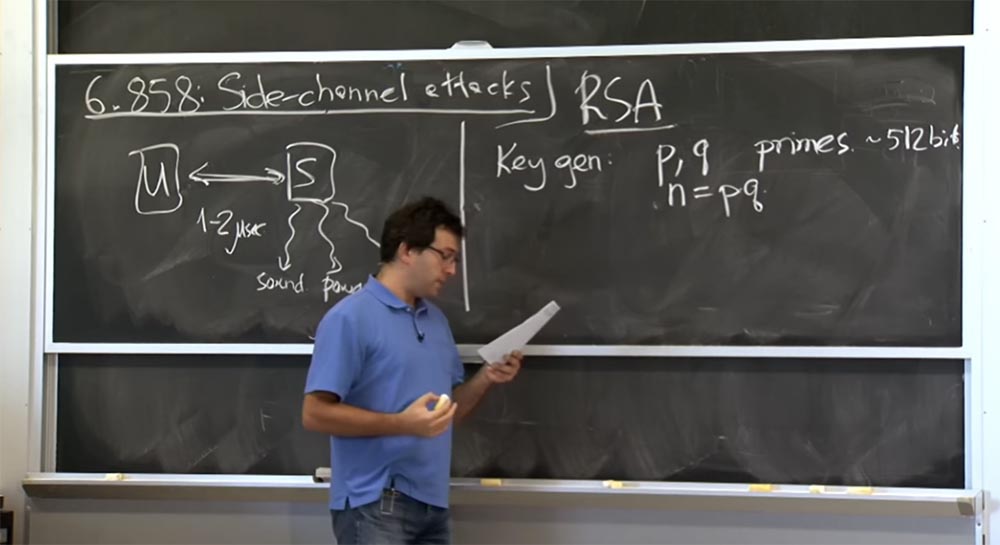 6.858: Side-channel attacks
RSA
U
S
1-2 μsec
sound
Key gen: p, q primes. ~512 bit
n = pq